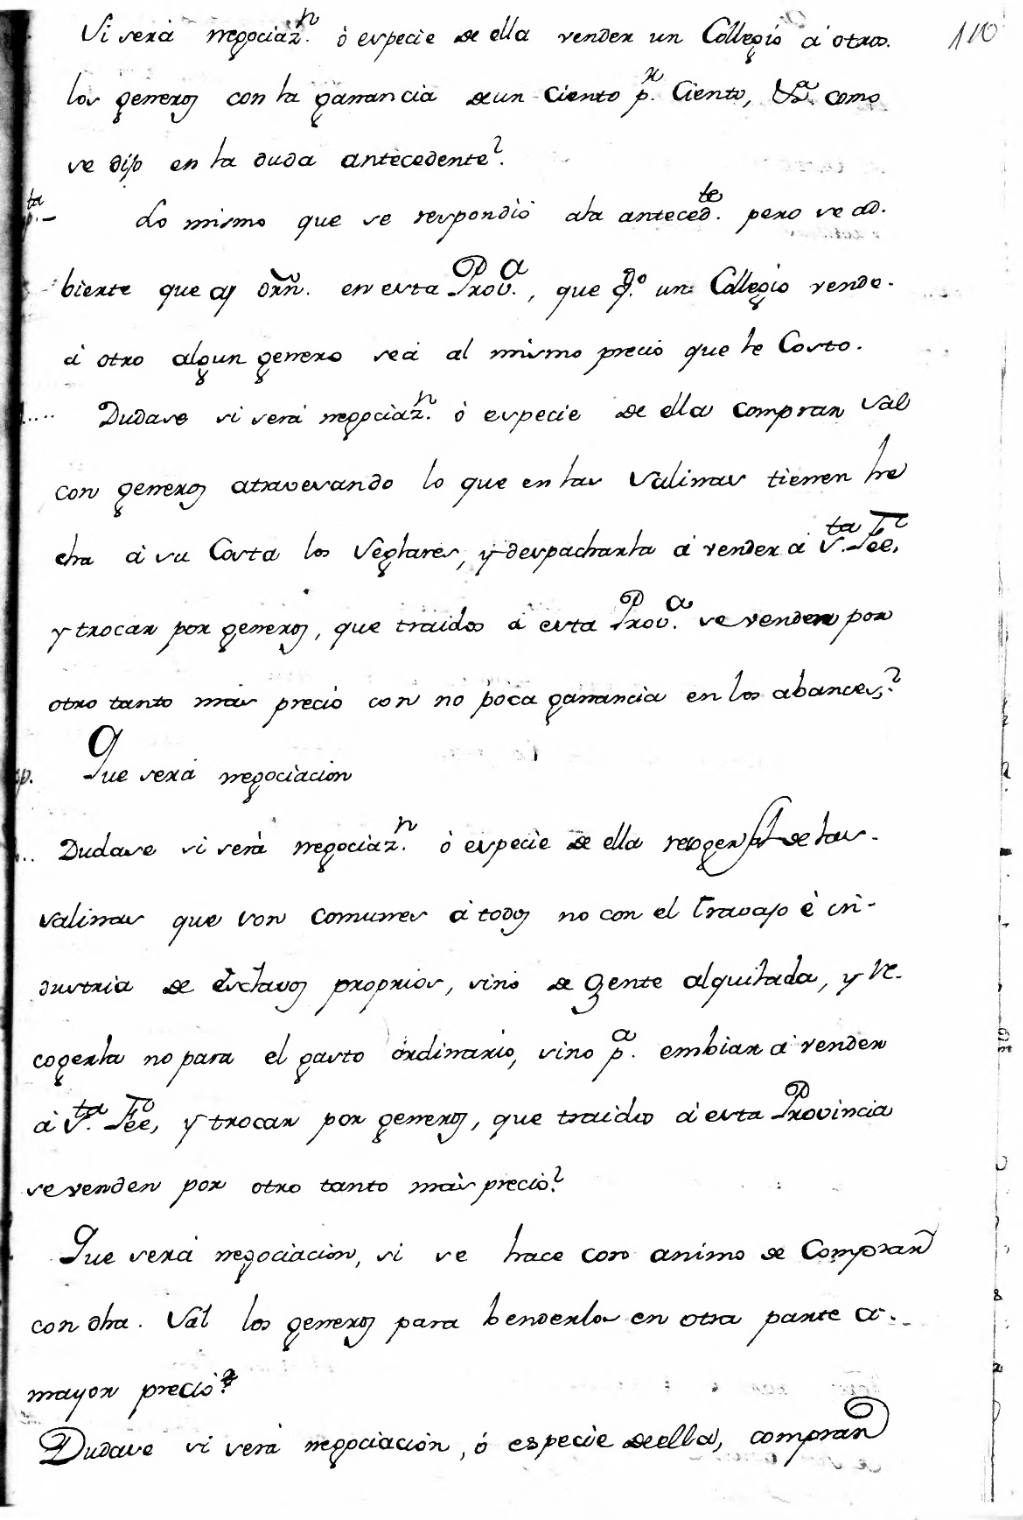 Si será negociaz.n ó especie de ella vender un Collegio á otros. 110
los generos con la ganancia de un ciento p.r Ciento, &.a como
se dijo en la duda antecedente?
ta
.- Lo mismo que se respondió ala anteced.te pero se ad.
bierte que ay ôrn. en esta Prov.a, que q.do un Collegio vende.
á otro algun genero sea al mismo precio que le Costo.
.... Dudase si será negociaz.n ó especie de ella comprar Sal
con generos atravesando lo que en las Salinas tienen he
cha á su Costa los Seglares, y despacharla á vender á S.ta Fee,
y trocar por generos, que traidos á esta Prov.a se venden por
otro tanto mas precio con no poca ganancia en los abances?
p. Que será negociacion
.. Dudase si será negociaz.n ó especie de ella recoger sal de las.
salinas que son comunes á todos no con el travajo è in-
dustria de esclavos proprios, sino de gente alquilada, y re-
cogerla no para el gasto órdinario, sino p.a embiar á vender
á S.ta Fee, y trocar por generos, que traidos á esta Provincia
se venden por otro tanto más precio?
Que será negociacion, si se hace con animo de Comprar
con dha. Sal los generos para benderlos en otra parte a.
mayor precio?
Dudase si será negociación, ó especie de ella, comprar